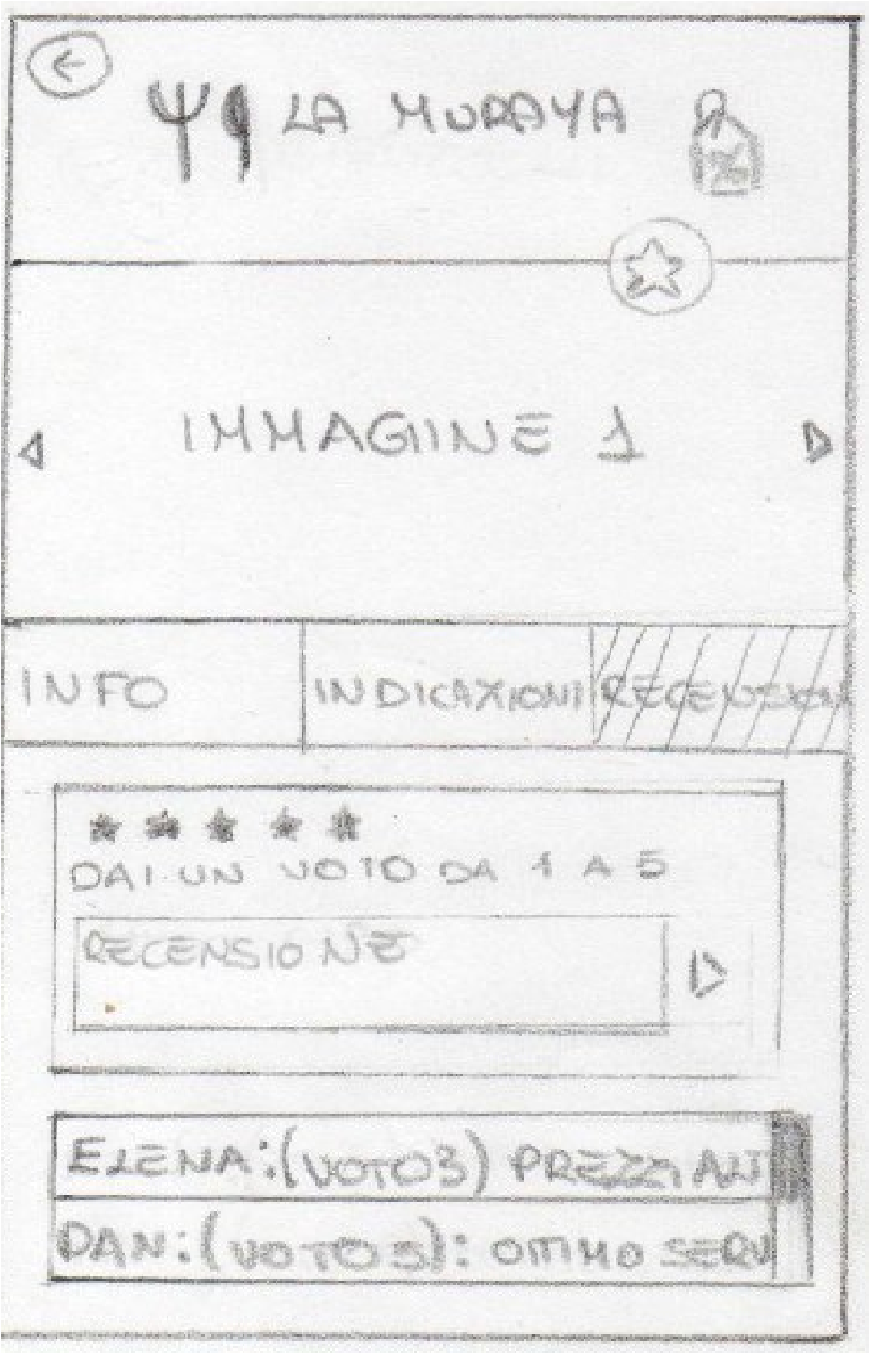 LA MURAYA
IMMAGIINE 1
INFO
INDICAZIONI
RECENSION
DAI UN VOTO DA 1 A 5
RECENSIONE
ELENA:(VOTO3) PREZZI ALT
DAN:(VOTO 5): OTTIMO SERV